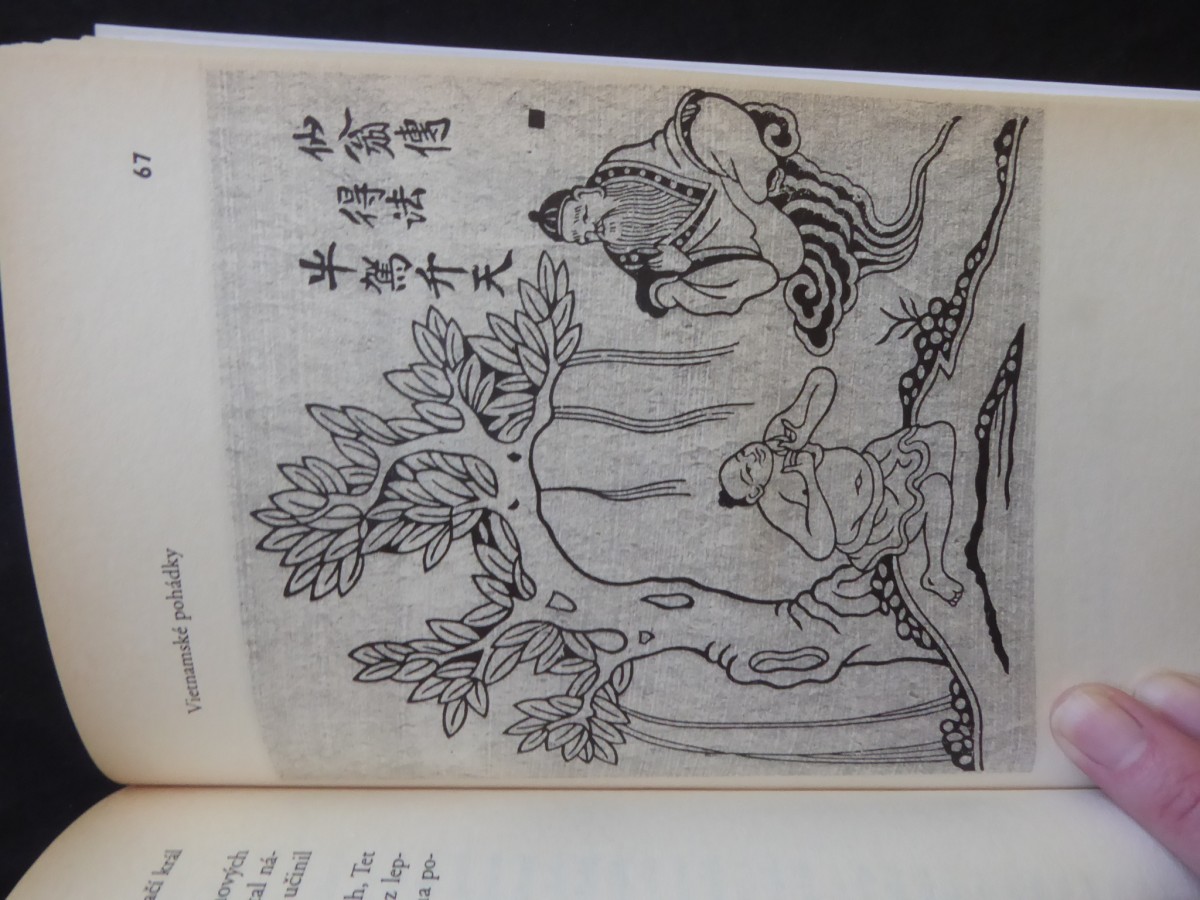 ačí král
ových
tal ná-
učinil
h, Tet
z lep-
na po-
Vietnamské pohádky
67
仙翁傳
得法
半駕升天